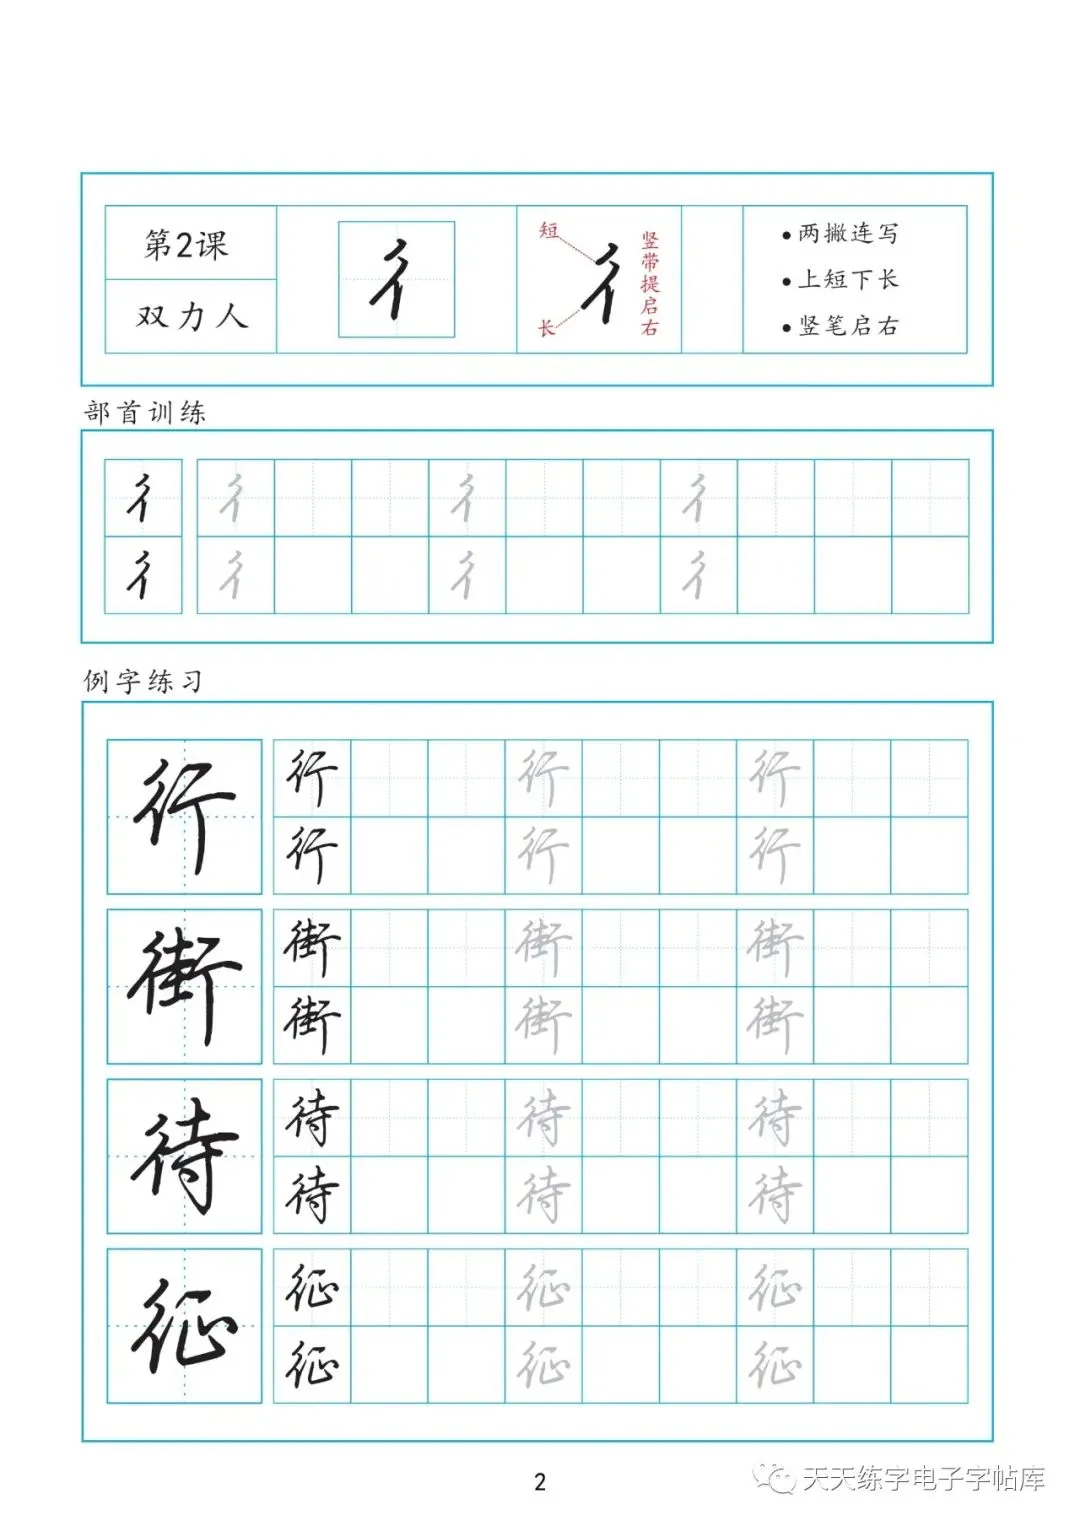 第2课
双力人
彳
短
长
彳
竖带提启右
•两撇连写
•上短下长
•竖笔启右
部首训练
彳 彳 彳 彳
彳 彳 彳 彳
例字练习
行
行 行 行
行 行 行
街
街 街 街
街 街 街
待
待 待 待
待 待 待
征
征 征 征
征 征 征
2
天天练字电子字帖库